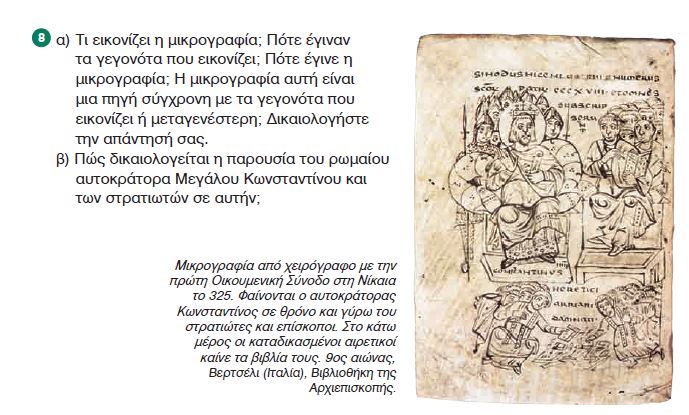 8 α) Τι εικονίζει η μικρογραφία; Πότε έγιναν
τα γεγονότα που εικονίζει; Πότε έγινε η
μικρογραφία; Η μικρογραφία αυτή είναι
μια πηγή σύγχρονη με τα γεγονότα που
εικονίζει ή μεταγενέστερη; Δικαιολογήστε
την απάντησή σας.
β) Πώς δικαιολογείται η παρουσία του ρωμαίου
αυτοκράτορα Μεγάλου Κωνσταντίνου και
των στρατιωτών σε αυτήν;
Μικρογραφία από χειρόγραφο με την
πρώτη Οικουμενική Σύνοδο στη Νίκαια
το 325. Φαίνονται ο αυτοκράτορας
Κωνσταντίνος σε θρόνο και γύρω του
στρατιώτες και επίσκοποι. Στο κάτω
μέρος οι καταδικασμένοι αιρετικοί
καίνε τα βιβλία τους. 9ος αιώνας,
Βερτσέλι (Ιταλία), Βιβλιοθήκη της
Αρχιεπισκοπής.
SINODUS NUMERUS
PATRE CCCXVIII ET OMNES
SUBSCRIP
CONSTANTINUS
HERETICI
ARRIANI
DAMNATI